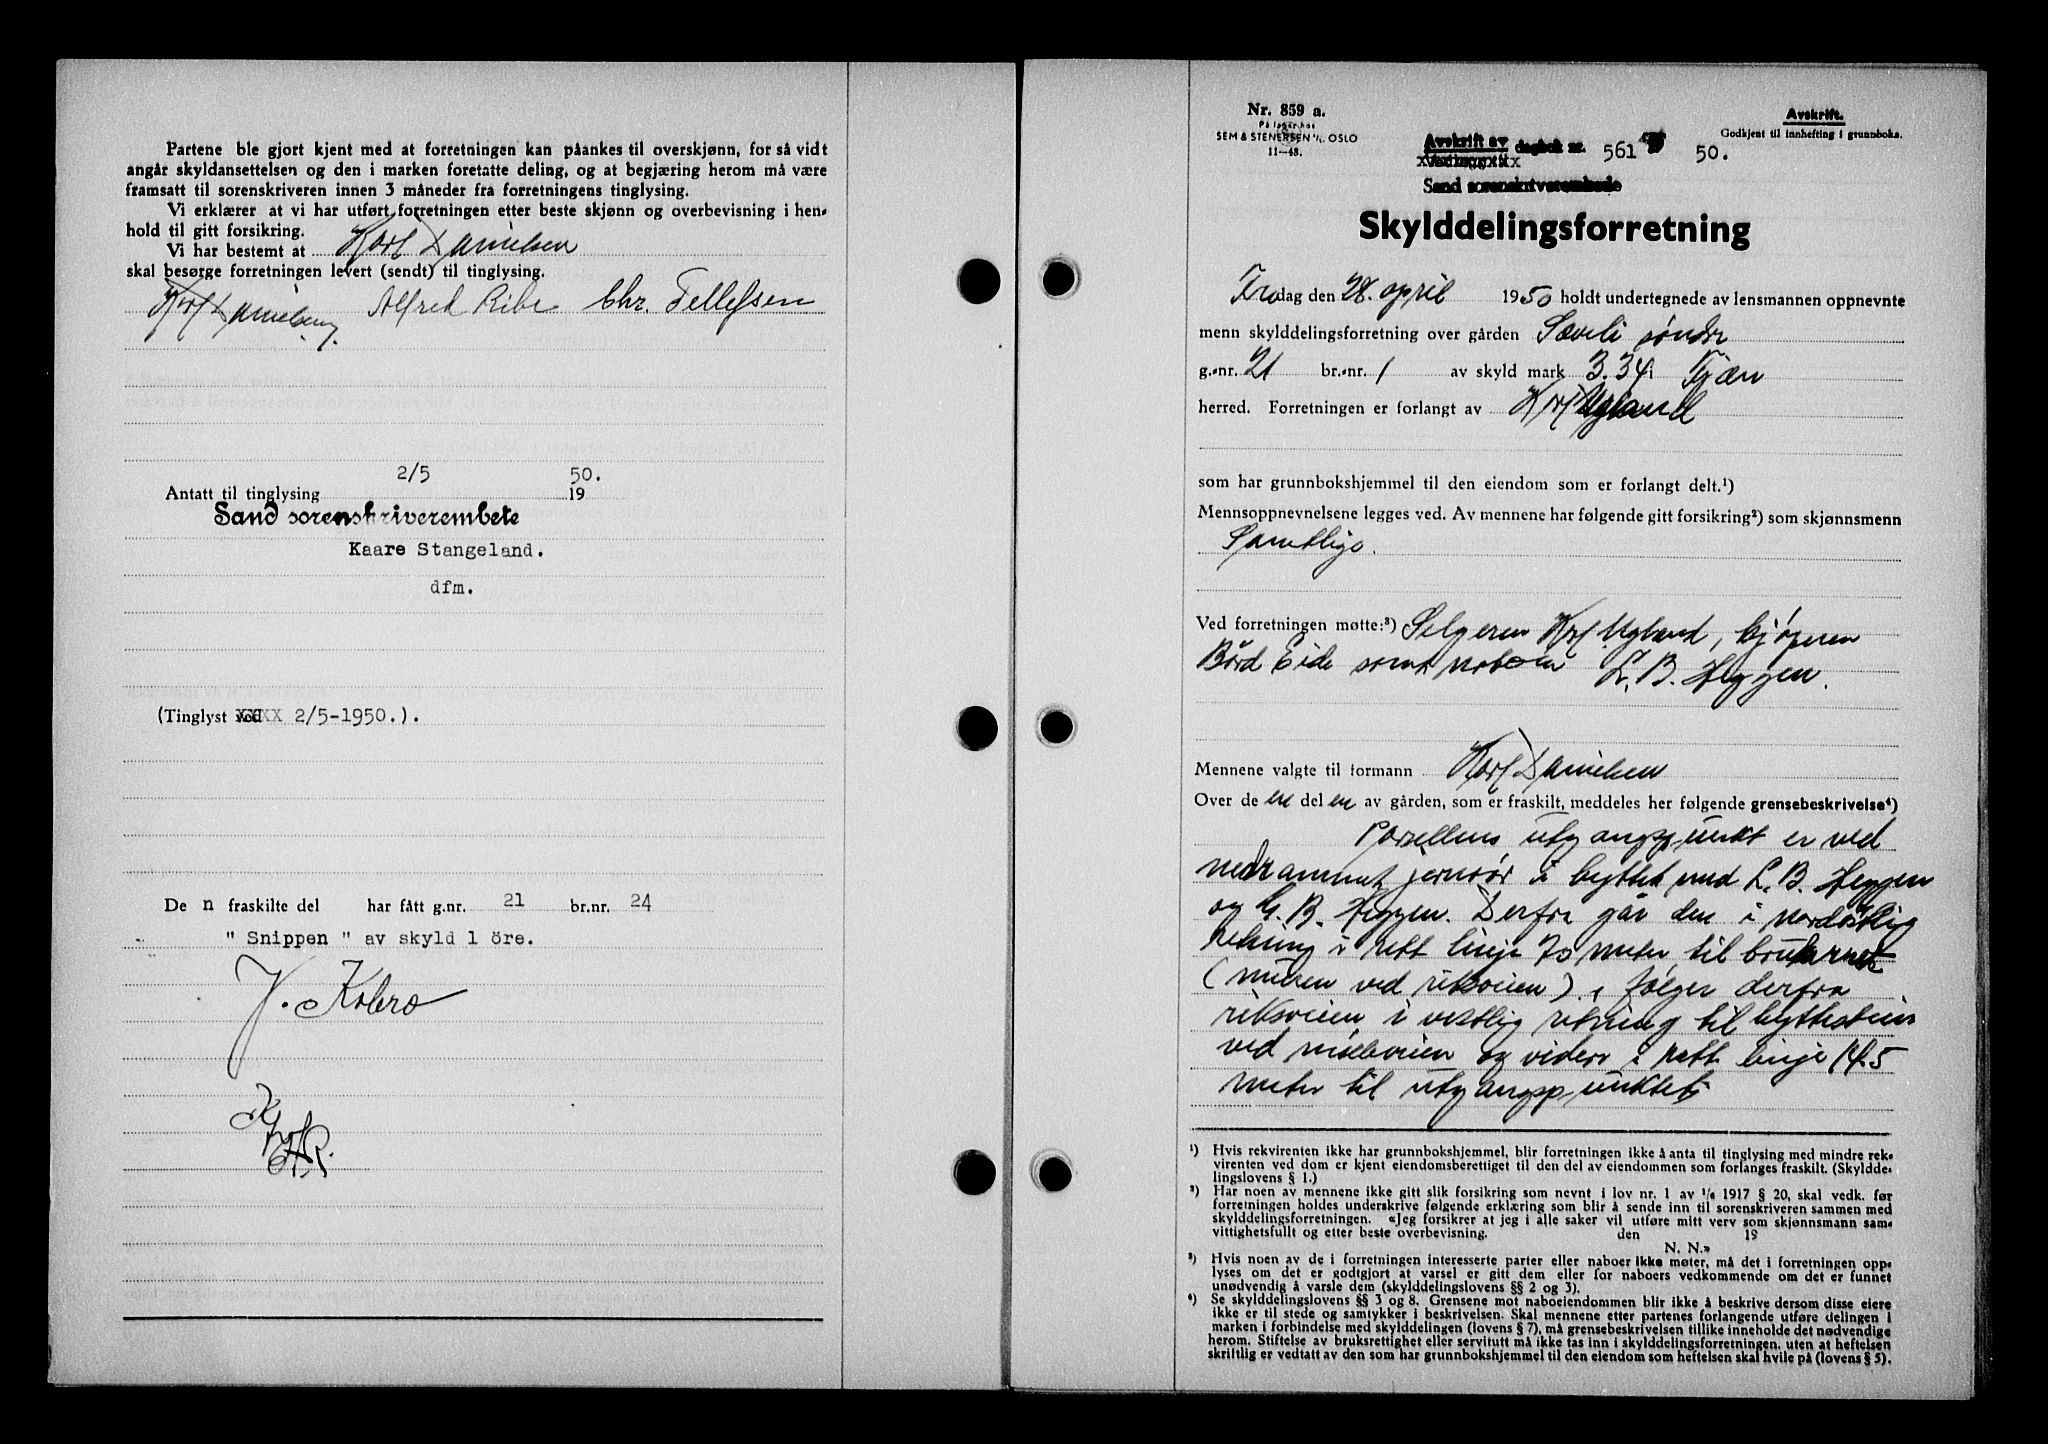 Partene ble gjort kjent med at forretningen kan påankes til overskjønn, for så vidt
angår skyldansettelsen og den i marken foretatte deling, og at begjæring herom må være
framsatt til sorenskriveren innen 3 måneder fra forretningens tinglysing.
Vi erklærer at vi har utført forretningen etter beste skjønn og overbevisning i hen-
hold til gitt forsikring.
Vi har bestemt at Karl Danielsen
skal besørge forretningen levert (sendt) til tinglysing.
Karl Danielsen. Alfred Ribe Chr. Tellefsen
2/5 50.
Antatt til tinglysing 19
Sand sorenskriverembete
Kaare Stangeland.
dfm.
(Tinglyst ved 2/5-1950.).
De n fraskilte del har fått g.nr. 21 br.nr. 24
" Snippen " av skyld 1 öre.
Nr. 859 a.
På lager hos
SEM & STENERSEN A/S, OSLO
11-48.
Avskrift.
Godkjent til innhefting i grunnboka.
Avskrift av dagbok nr. 561 50.
Sand sorenskriverembede
Skylddelingsforretning
Fredag den 28. april 1950 holdt undertegnede av lensmannen oppnevnte
menn skylddelingsforretning over gården Sæveli søndre
g.-nr. 21 br.-nr. 1 av skyld mark 3.34 i Fjære
herred. Forretningen er forlangt av Karl Ugland
som har grunnbokshjemmel til den eiendom som er forlangt delt.¹)
Mennsoppnevnelsene legges ved. Av mennene har følgende gitt forsikring²) som skjønnsmenn
Samtlige.
Ved forretningen møtte:³) Selgeren Karl Ugland, kjøperen
Bård Eide samt naboen L. B. Heggen.
Mennene valgte til formann Karl Danielsen
Over de en del en av gården, som er fraskilt, meddeles her følgende grensebeskrivelse⁴)
Parsellens utgangspunkt er ved
nedrammet jernrør i byttet med L. B. Heggen
og G. B. Heggen. Derfra går den i nordøstlig
retning i rett linje 70 meter til brukarnet
( ved riksveien) , følger derfra
riksveien i vestlig retning til byttestein
ved og videre i rett linje 14.5
meter til utgangspunktet.
¹) Hvis rekvirenten ikke har grunnbokshjemmel, blir forretningen ikke å anta til tinglysing med mindre rek-
virenten ved dom er kjent eiendomsberettiget til den del av eiendommen som forlanges fraskilt. (Skyldde-
lingslovens § 1.)
²) Har noen av mennene ikke gitt slik forsikring som nevnt i lov nr. 1 av 1/6 1917 § 20, skal vedk. før
forretningen holdes underskrive følgende erklæring som blir å sende inn til sorenskriveren sammen med
skylddelingsforretningen. «Jeg forsikrer at jeg i alle saker vil utføre mitt verv som skjønnsmann sam-
vittighetsfullt og etter beste overbevisning. den 19
N. N.»
³) Hvis noen av de i forretningen interesserte parter eller naboer ikke møter, må det i forretningen opp-
lyses om det er godtgjort at varsel er gitt dem eller for naboers vedkommende om det er funnet
unødvendig å varsle dem (skylddelingslovens §§ 2 og 3).
⁴) Se skylddelingslovens §§ 3 og 8. Grensene mot naboeiendommen blir ikke å beskrive dersom disse eiere
ikke er til stede og samtykker i beskrivelsen. Skal mennene etter partenes forlangende utføre delingen i
marken i forbindelse med skylddelingen (lovens § 7), må grensebeskrivelsen tillike inneholde det nødvendige
herom. Stiftelse av bruksrettighet eller servitutt må ikke tas inn i skylddelingsforretningen, uten at heftelsen
skriftlig er vedtatt av den som har grunnbokshjemmel til den eiendom som heftelsen skal hvile på (lovens § 5).